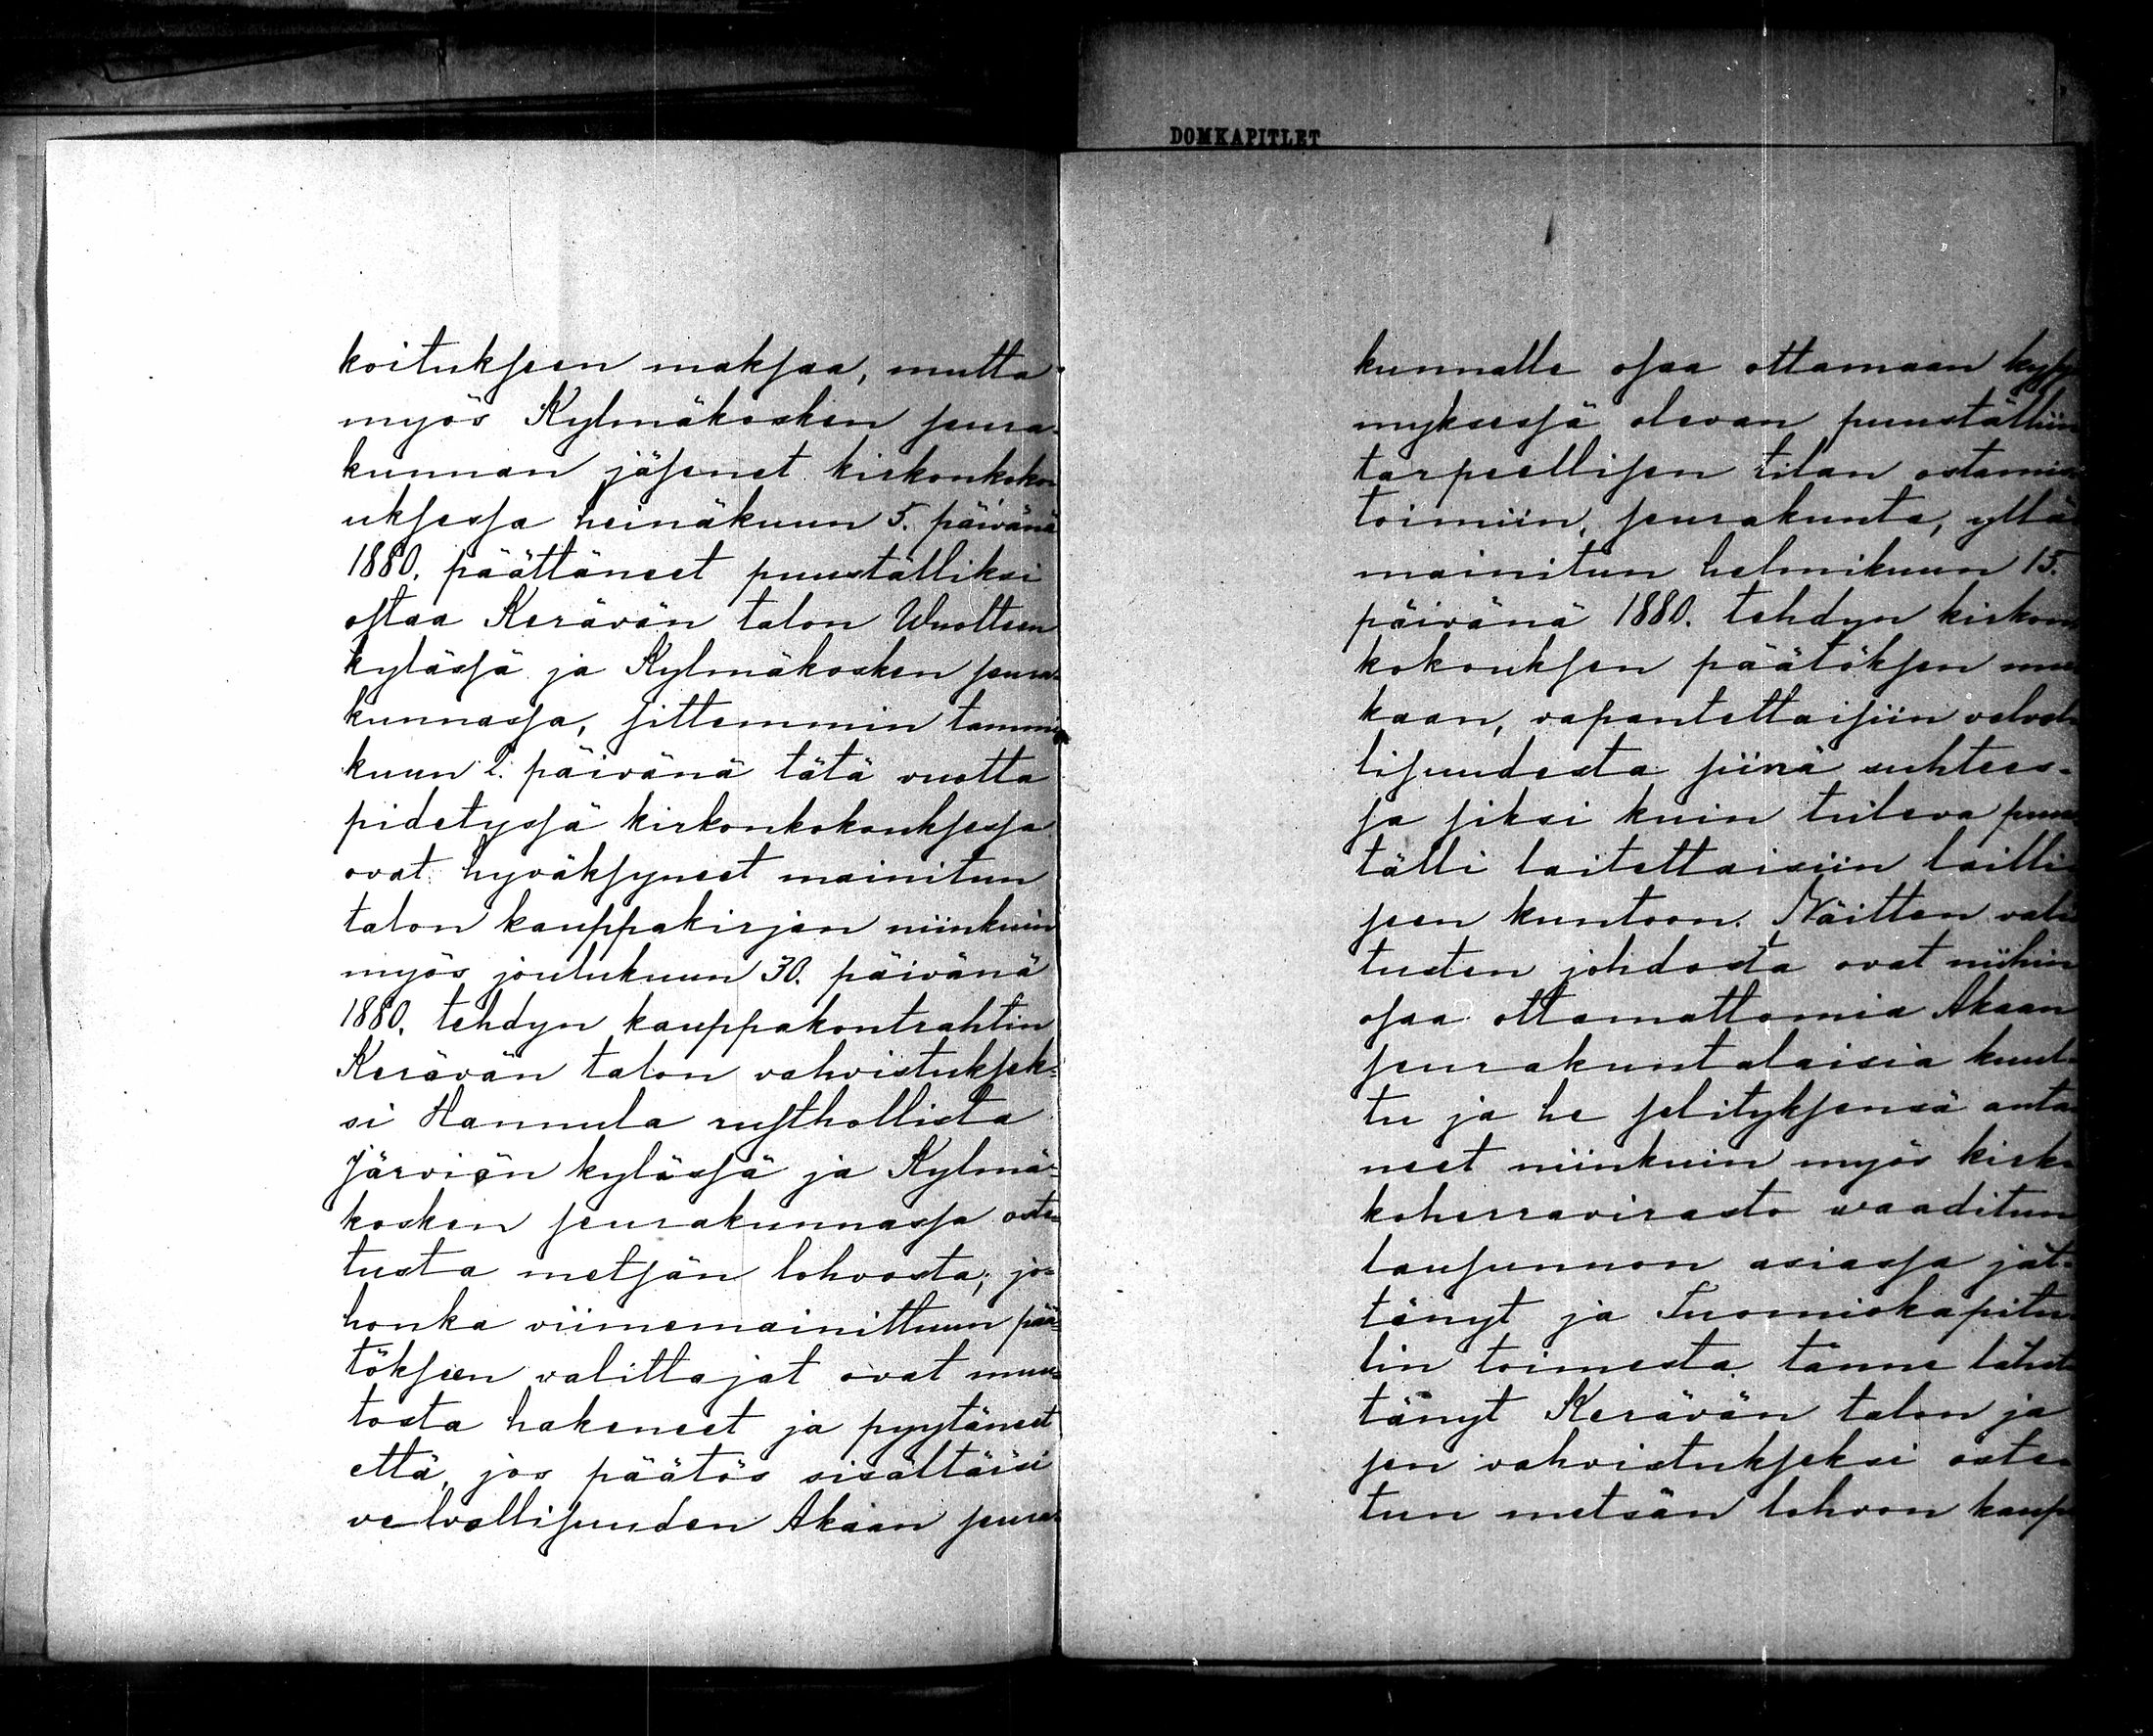 koitukseen maksaa, mutta
myös Kylmäkosken seura-
kunnan jäsenet kirkonkoko-
uksessa heinäkuun 5. päivänä
1880. päättäneet puuställiksi
ostaa Kerävän talon Wuolteen
kylässä ja Kylmäkosken seura-
kunnassa, sittemmin tammi-
kuun 2. päivänä tätä vuotta
pidetyssä kirkonkokouksessa
ovat hyväksyneet mainitun
talon kauppakirjan niinkuin
myös joulukuun 30. päivänä
1880. tehdyn kauppakontrahtin
Kerävän talon vahvistuksek-
si Hannula rusthollista
Järviön kylässä ja Kylmä-
kosken seurakunnassa oste-
tusta metsän lohvosta; jo-
honka viimemainittuun pää-
tökseen valittajat ovat muu-
tosta hakeneet ja pyytäneet
että, jos päätös sisältäisi
velvollisuuden Akaan seura-
DOMKAPITLET
kunnalle osaa ottamaan kysy-
myksessä olevan puuställiin
tarpeellisen tilan ostamisi
toimiin, seurakunta, yllä
mainitun helmikuun 15.
päivänä 1880. tehdyn kirkon-
kokouksen päätöksen mu-
kaan, vapautettaisiin velvol-
lisuudesta siinä suhtees-
sa siksi kuin tuleva puus-
tälli laitettaisiin lailli-
seen kuntoon. Näitten vali-
tusten johdosta ovat niihin
osaa ottamattomia Akaan
seurakuntalaisia kuul-
tu ja he selityksensä anta-
neet niinkuin myös kirk-
koherravirasto waaditun
lausunnon asiassa jät-
tänyt ja Tuomiokapitu-
lin toimesta tänne lähet-
tänyt Kerävän talon ja
sen vahvistukseksi oste-
tun metsän lohvon kaup-